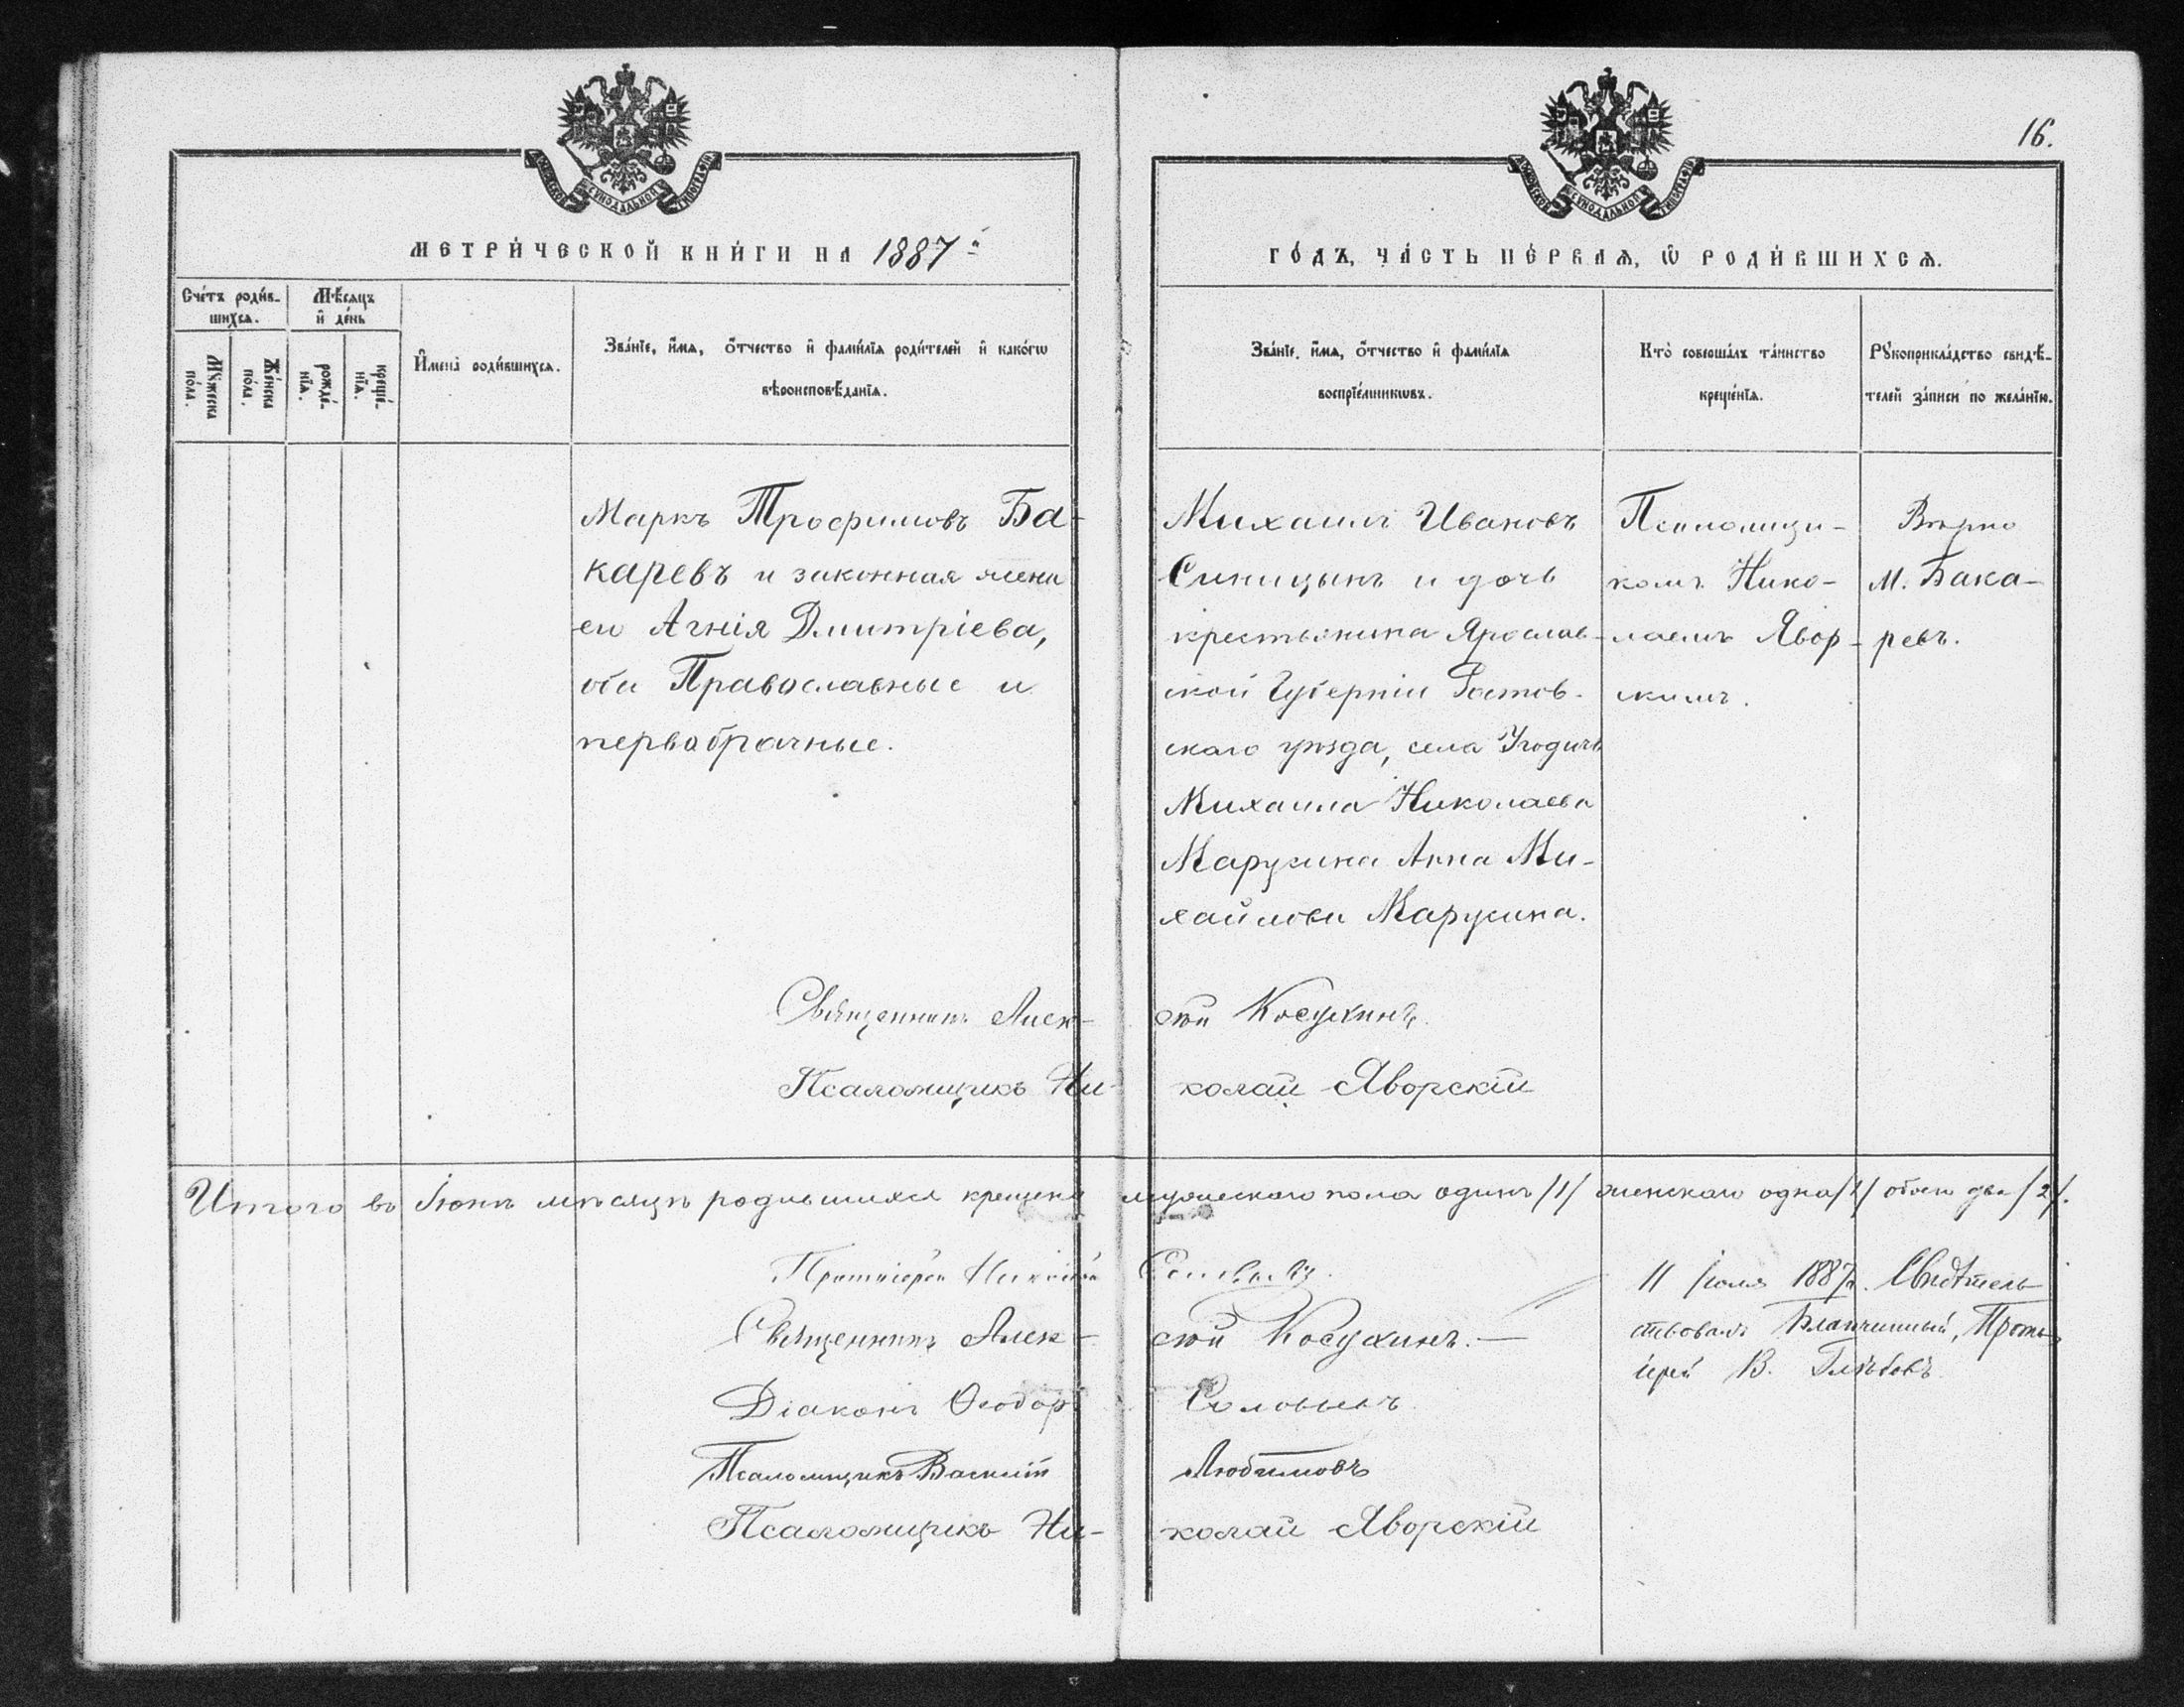 16.
МЕТРИ́ЧЕСКОЙ КНИ́ГИ НА 1887й
ГО́ДЪ, ЧА́СТЬ ПЕ́РВАѦ, Ѡ РОДИ́ВШИХСѦ.
Сче́тъ роди́в-
шихсѧ.
Мꙋ́жеска
по́ла.
Же́нска
по́ла.
Мѣ́сѧцъ
и де́нь
рожде́-
нїѧ.
креще́-
нїѧ.
Имена̀ роди́вшихсѧ.
Зва́нїе, и́мѧ, о́тчество и фами́лїѧ роди́телей и како́гѡ
вѣроисповѣ́данїѧ.
Зва́нїе, и́мѧ, о́тчество и фами́лїѧ
воспрїе́мникѡвъ.
Кто̀ соверша́лъ та́инство
креще́нїѧ.
Рꙋкоприкла́дство свидѣ́-
телей за́писи по жела́нїю.
Маркъ Трофимовъ Ба-
каревъ и законная жена
его Агнія Дмитріева,
оба Православные и
первобрачные.
Михаилъ Ивановъ
Синицынъ и дочь
крестьянина Ярослав-
ской Губерніи Ростов-
скаго уѣзда, села Угодичъ
Михаила Николаева
Марусина Анна Ми-
хайлова Марусина.
Псаломщи-
комъ Нико-
лаемъ Явор-
скимъ.
Вѣрно
М. Бака-
ревъ.
Священникъ Алек-сѣй Косухинъ.
Псаломщикъ Ни-колай Яворскій
Итого въ Іюнѣ мѣсяцѣ родившихся крещено мужескаго пола одинъ /1/ женскаго одна /1/ обоего два /2/.
Протоіерей Николай
Священникъ Алек-сѣй Косухинъ.
Діаконъ Ѳеодоръ Соловьевъ
Псаломщикъ Василій Любимовъ
Псаломщикъ Ни-колай Яворскій
11 Іюля 1887г. Свидѣтель-
ствовалъ Благочинный, Прото-
іерей В. Глѣбовъ